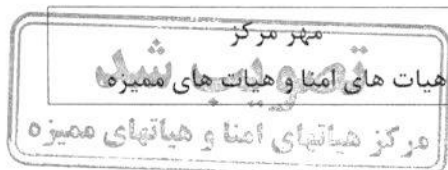 مهر مرکز
تصویب شد
هیات های امنا و هیات های ممیزه
مرکز هیاتهای امنا و هیاتهای ممیزه